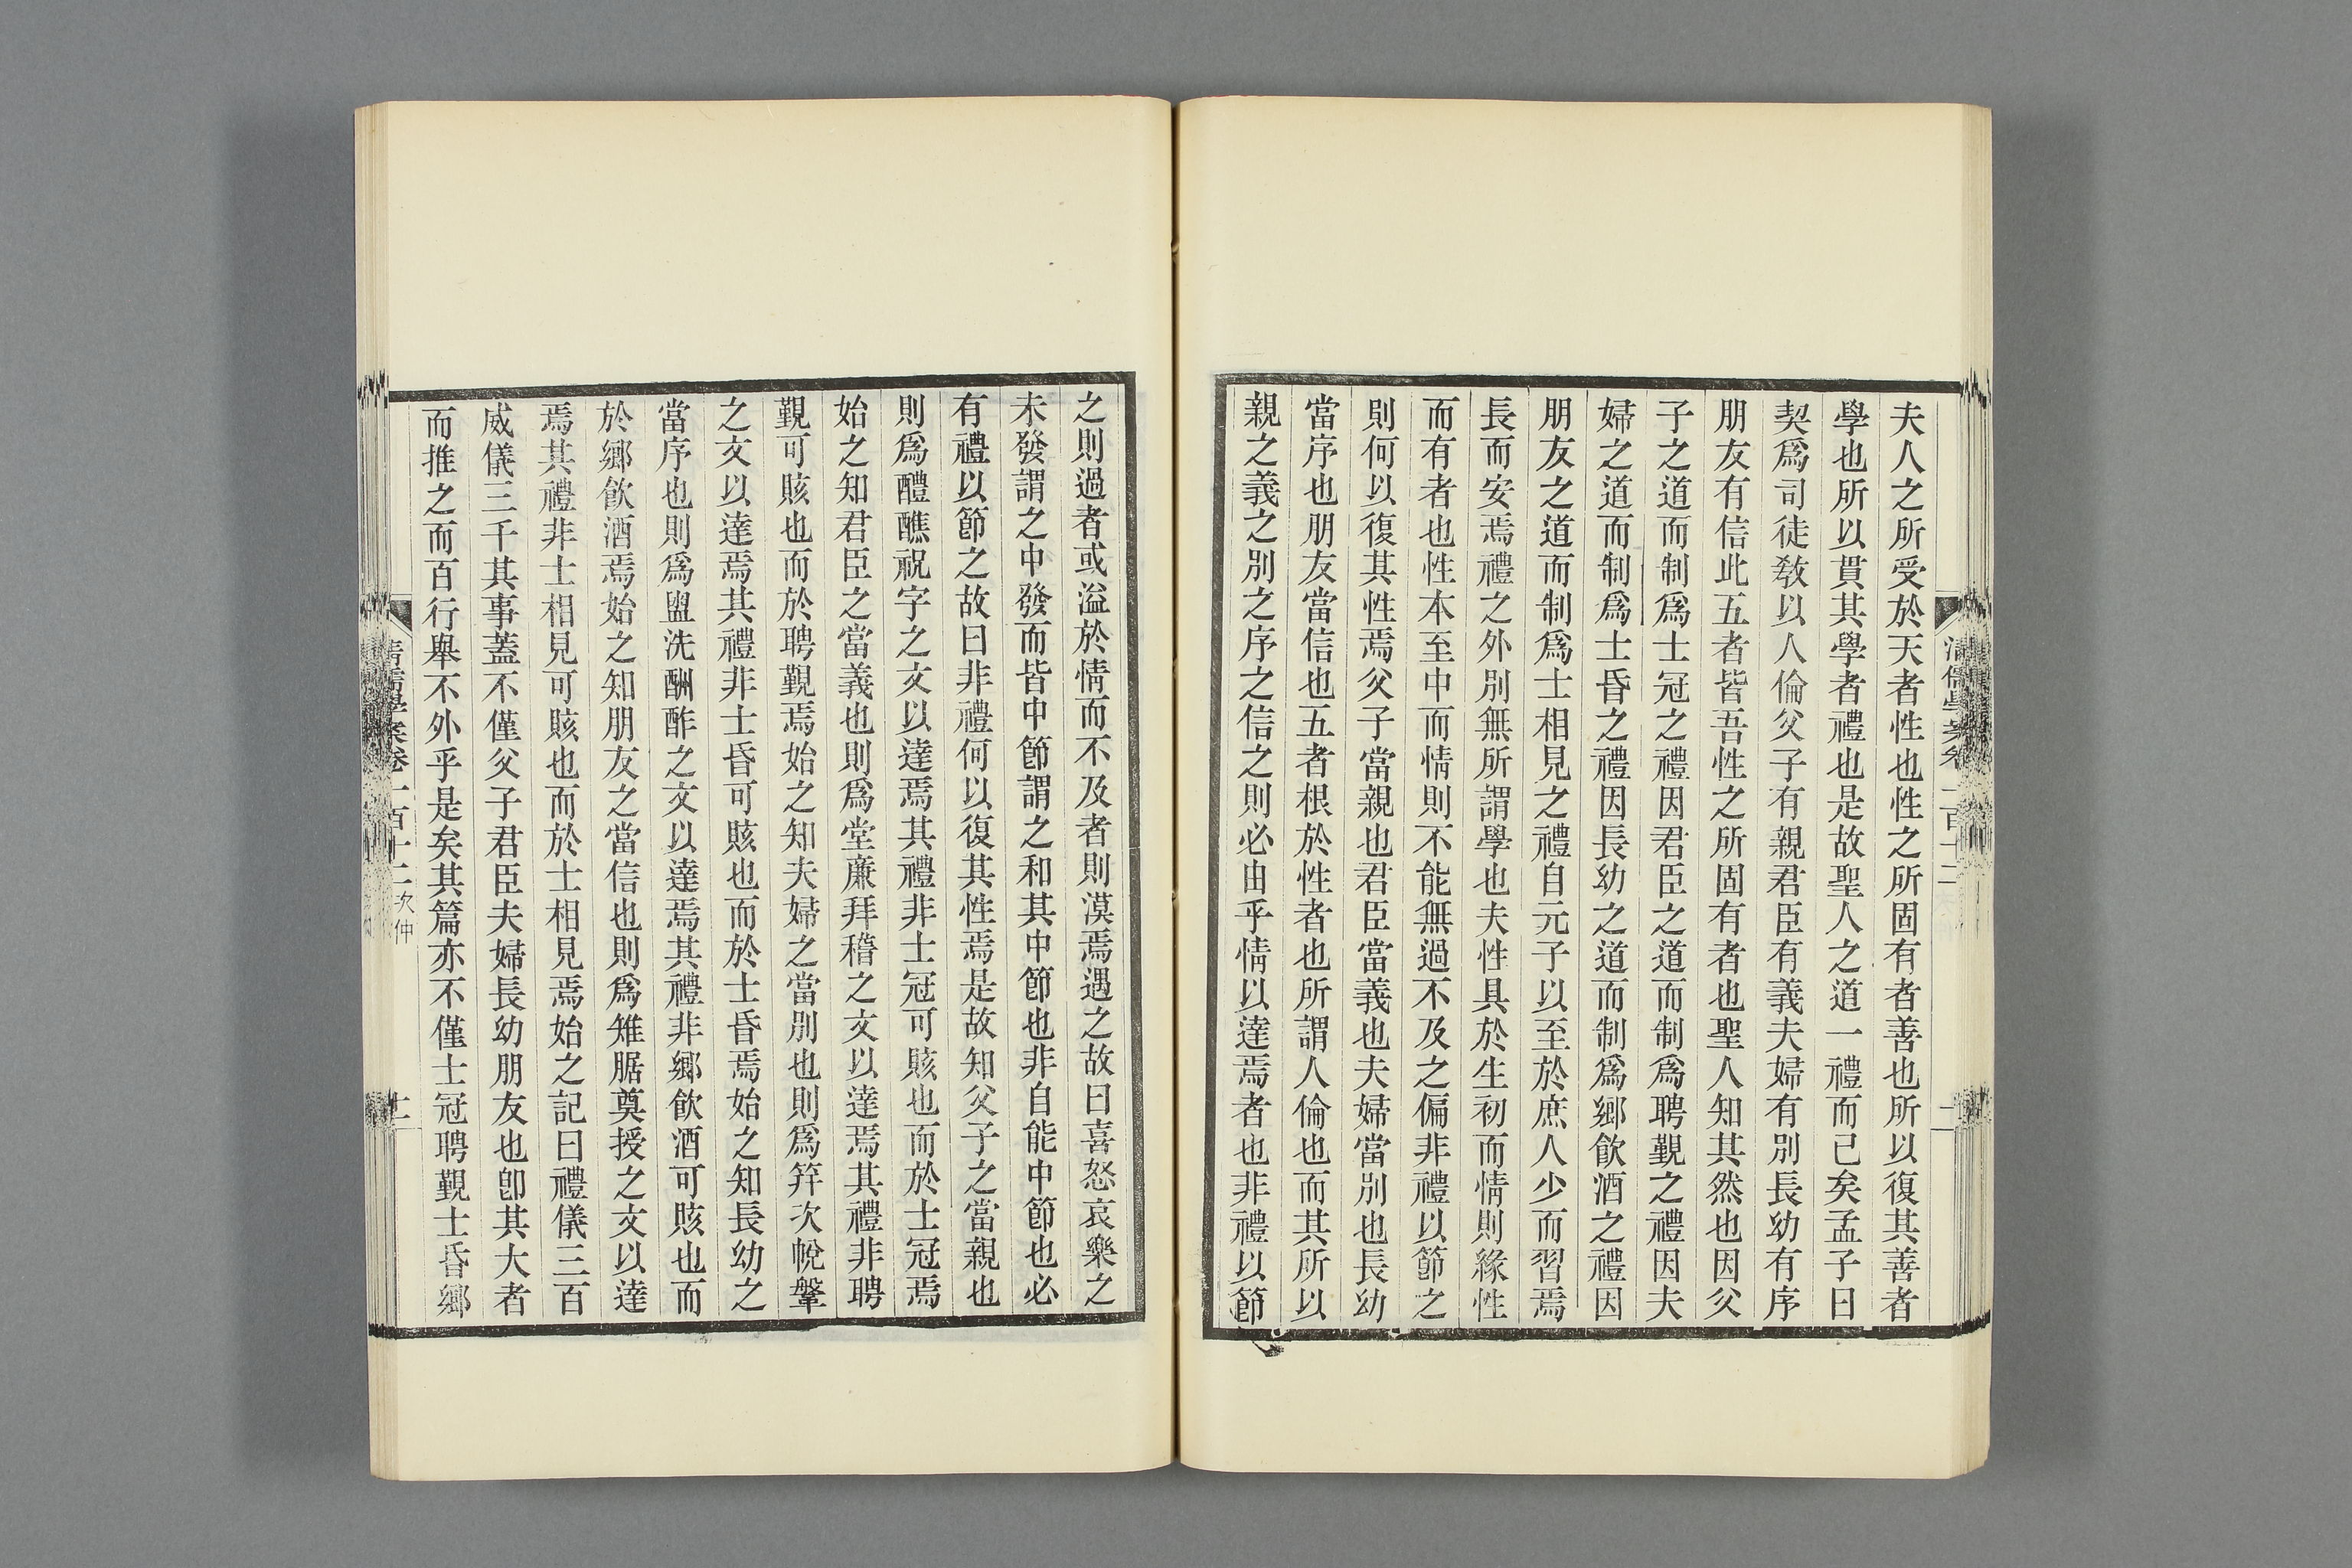 夫人之所受於天者性也性之所固有者善也所以復其善者
學也所以貫其學者禮也是故聖人之道一禮而已矣孟子曰
契爲司徒敎以人倫父子有親君臣有義夫婦有別長幼有序
朋友有信此五者皆吾性之所固有者也聖人知其然也因父
子之道而制爲士冠之禮因君臣之道而制爲聘覲之禮因夫
婦之道而制爲士昏之禮因長幼之道而制爲鄉飮酒之禮因
朋友之道而制爲士相見之禮自元子以至於庶人少而習焉
長而安焉禮之外別無所謂學也夫性具於生初而情則緣性
而有者也性本至中而情則不能無過不及之偏非禮以節之
則何以復其性焉父子當親也君臣當義也夫婦當別也長幼
當序也朋友當信也五者根於性者也所謂人倫也而其所以
親之義之別之序之信之則必由乎情以達焉者也非禮以節
之則過者或溢於情而不及者則漠焉遇之故曰喜怒哀樂之
未發謂之中發而皆中節謂之和其中節也非自能中節也必
有禮以節之故曰非禮何以復其性焉是故知父子之當親也
則爲醴醮祝字之文以達焉其禮非士冠可賅也而於士冠焉
始之知君臣之當義也則爲堂廉拜稽之文以達焉其禮非聘
覲可賅也而於聘覲焉始之知夫婦之當別也則爲笄次帨鞶
之文以達焉其禮非士昏可賅也而於士昏焉始之知長幼之
當序也則爲盥洗酬酢之文以達焉其禮非鄉飮酒可賅也而
於鄉飮酒焉始之知朋友之當信也則爲雉腒奠授之文以達
焉其禮非士相見可賅也而於士相見焉始之記曰禮儀三百
威儀三千其事蓋不僅父子君臣夫婦長幼朋友也卽其大者
而推之而百行舉不外乎是矣其篇亦不僅士冠聘覲士昏鄉
清儒學案卷一百十二 次仲